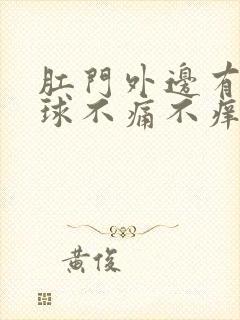 肛門外邊有
球不痛不癢
黃俊